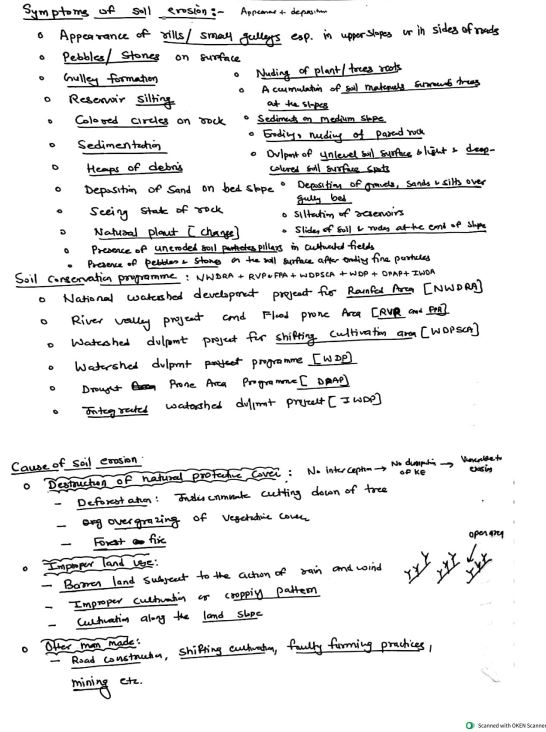 Symptoms of soil erosion:- Appearance + deposition
o Appearance of rills/ small gulleys esp. in upper slopes or in sides of roads
o Pebbles/ Stones on surface
o Gulley formation
o Nuding of plant/trees roots
o Reservoir silting
o Accumulation of soil materials surrounds trees at the slopes
o Colored circles on rock
o Sediments on medium slope
o Sedimentation
o Eroding & nuding of parent rock
o Heaps of debris
o Dvlpmt of unlevel soil surface & light & deep-colored soil surface spots
o Deposition of Sand on bed slope
o Deposition of gravels, sands & silts over gully bed
o Seeing State of rock
o Siltation of reservoirs
o Natural plant [change]
o Slides of soil & rocks at the end of slope
o Presence of uneroded soil particles pillars in cultivated fields
o Presence of pebbles & stones on the soil surface after eroding fine particles
Soil conservation programme : NWDRA + RVP & FPA + WDPSCA + WDP + DPAP + IWDA
o National watershed development project for Rainfed Area [NWDRA]
o River valley project and Flood prone Area [RVR and FPR]
o Watershed dvlpmt project for shifting cultivation area [WDPSCA]
o Watershed dvlpmt programme [WDP]
o Drought Prone Area Programme [DPAP]
o Integrated watershed dvlpmt project [IWDP]
Cause of soil erosion:
o Destruction of natural protective cover : No interception → No dissipation of KE → Vulnerable to erosion
- Deforestation: Indiscriminate cutting down of tree
- overgrazing of vegetative cover
- Forest fire
open area
o Improper land use:
- Barren land subject to the action of rain and wind
- Improper cultivation or cropping pattern
- Cultivation along the land slope
o Other man made:
- Road construction, shifting cultivation, faulty farming practices,
mining etc.
Scanned with OKEN Scanner